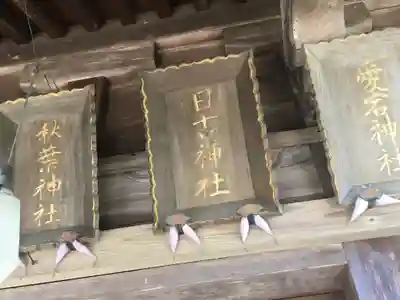 秋葉神社
日吉神社
愛宕神社